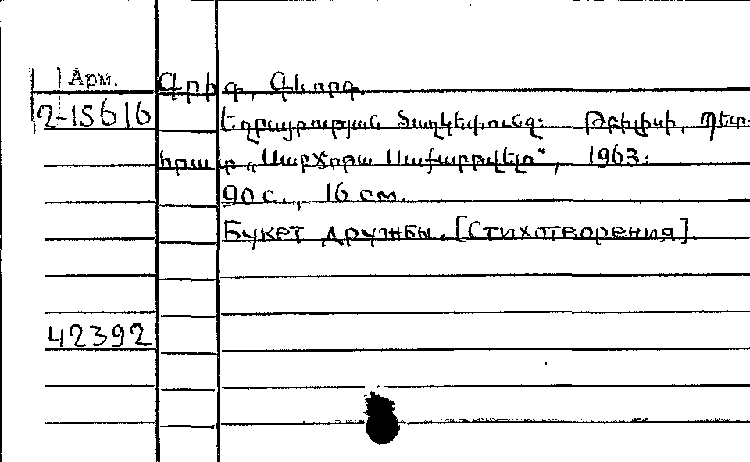 Арм. Գրիգ, Գևորգ.
2-15616 Եղբայրության ծաղկեփունջ: Թբիլիսի, Պետ-
հրատ „Սաբչոթա Սաքարթվելո“, 1963:
90 с., 16 см.
Букет дружбы. [Стихотворения].
42392